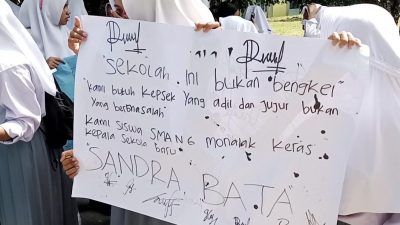 "Sekolah ini bukan "bengkel"
"Kami butuh kepsek yang adil dan jujur bukan
yang bermasalah"
Kami siswa SMAN 6 monalak keras
kepala sekola baru.
"SANDRA BATA"